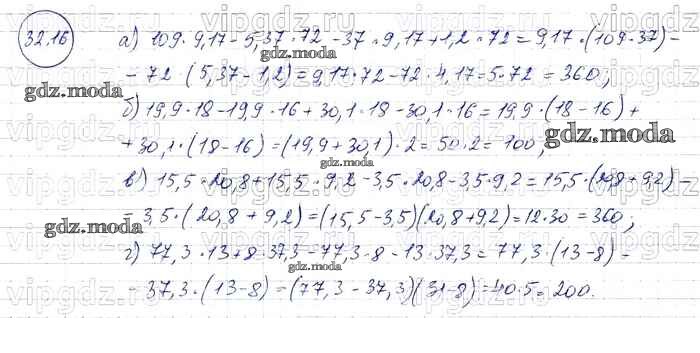 32.16
а) 109 · 9,17 - 5,37 · 72 - 37 · 9,17 + 1,2 · 72 = 9,17 · (109 - 37) -
- 72 · (5,37 - 1,2) = 9,17 · 72 - 72 · 4,17 = 5 · 72 = 360;
б) 19,9 · 18 - 19,9 · 16 + 30,1 · 18 - 30,1 · 16 = 19,9 · (18 - 16) +
+ 30,1 · (18 - 16) = (19,9 + 30,1) · 2 = 50 · 2 = 100;
в) 15,5 · 20,8 + 15,5 · 9,2 - 3,5 · 20,8 - 3,5 · 9,2 = 15,5 · (20,8 + 9,2) -
- 3,5 · (20,8 + 9,2) = (15,5 - 3,5)(20,8 + 9,2) = 12 · 30 = 360;
г) 77,3 · 13 + 8 · 37,3 - 77,3 · 8 - 13 · 37,3 = 77,3 · (13 - 8) -
- 37,3 · (13 - 8) = (77,3 - 37,3)(31 - 8) = 40 · 5 = 200.
gdz.moda
gdz.moda
gdz.moda
gdz.moda
gdz.moda
gdz.moda
vipgdz.ru
vipgdz.ru
vipgdz.ru
vipgdz.ru